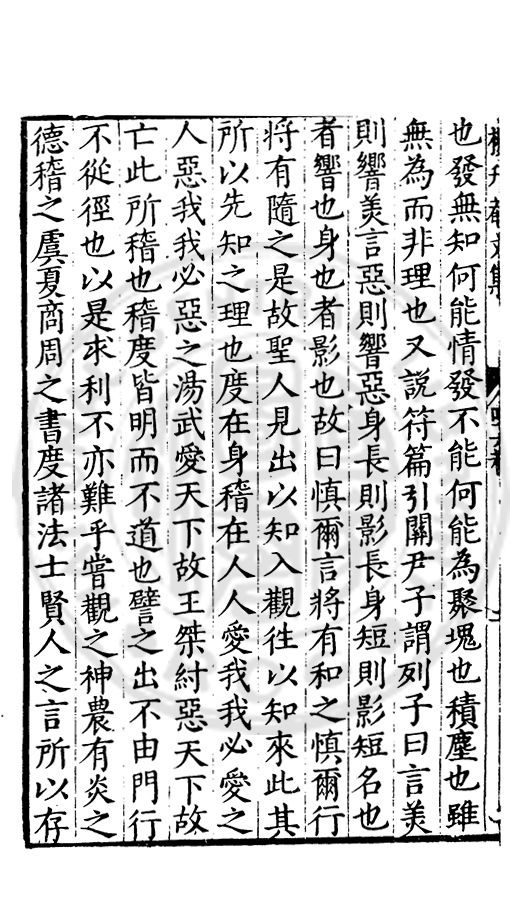 也發無知何能情發不能何能為聚塊也積塵也雖
無為而非理也又說符篇引關尹子謂列子曰言美
則響美言惡則響惡身長則影長身短則影短名也
者響也身也者影也故曰慎爾言將有和之慎爾行
將有隨之是故聖人見出以知入觀往以知來此其
所以先知之理也度在身稽在人人愛我我必愛之
人惡我我必惡之湯武愛天下故王桀紂惡天下故
亡此所稽也稽度皆明而不道也譬之出不由門行
不從徑也以是求利不亦難乎嘗觀之神農有炎之
德稽之虞夏商周之書度諸法士賢人之言所以存